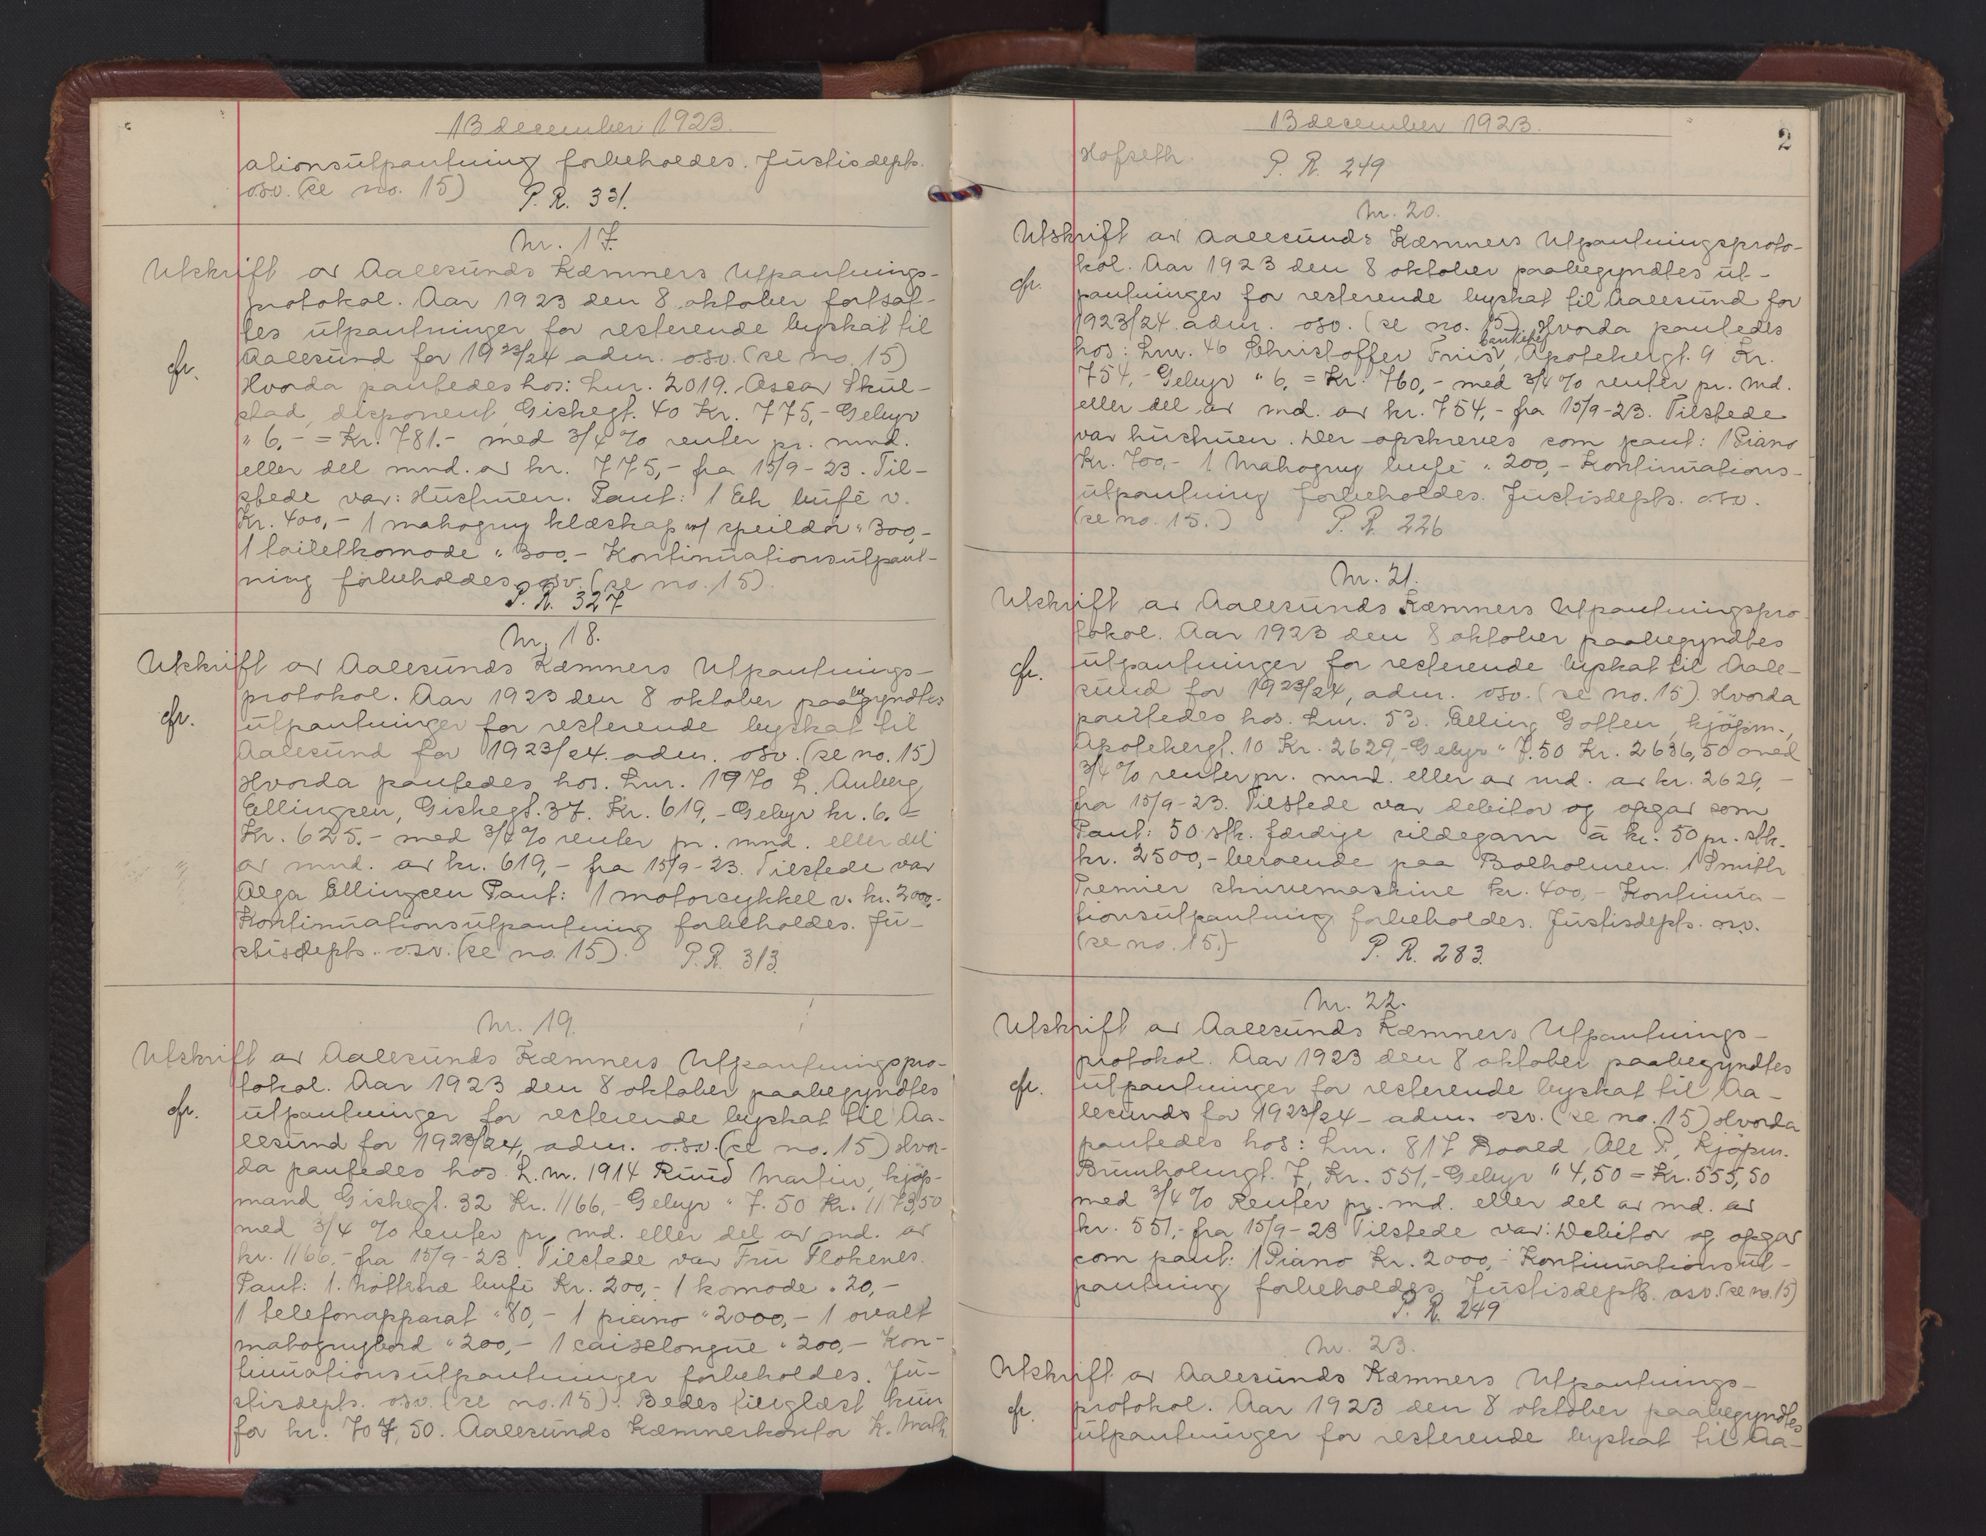 13 december 1923.
ationsutpantning forbeholdes. Justisdepts.
osv. (se no. 15) P. R. 331.
Nr. 17.
Utskrift av Aalesunds Kæmners Utpantnings-
protokol. Aar 1923 den 8 oktober fortsat-
tes utpantninger for resterende byskat til
cfr. Aalesund for 1923/24 adm. osv. (se no. 15)
Hvorda pantedes hos: Lnr. 2019. Ascar Skul-
stad, disponent, Giskegt. 40 Kr. 775,- Gebyr
" 6,- = Kr. 781.- med 3/4 % renter pr. mnd.
eller del mnd. av kr. 775,- fra 15/9 - 23. Til-
stede var: Hustruen. Pant: 1 Ek bufé v.
Kr. 400,- 1 mahogny klæskap m/ speildør " 300,-
1 toiletkomode " 300.- Kontinuationsutpant-
ning forbeholdes osv. (se no. 15).
P. R. 327
Nr. 18.
Utskrift av Aalesunds Kæmners Utpantnings-
protokol. Aar 1923 den 8 oktober paabegyndtes
cfr. utpantninger for resterende byskat til
Aalesund for 1923/24 adm. osv. (se no. 15)
Hvorda pantedes hos. Lnr. 1970 L. Auberg
Ellingsen, Giskegt. 37. Kr. 619,- Gebyr kr. 6. =
Kr. 625.- med 3/4 % renter pr. mnd. eller del
av mnd. av kr. 619,- fra 15/9 - 23. Tilstede var
Alga Ellingsen Pant: 1 motorcykkel v. kr. 2000,-
Kontinuationsutpantning forbeholdes. Ju-
stisdepts. osv. (se no. 15). P. R. 313.
Nr. 19.
Utskrift av Aalesunds Kæmners Utpantningspro-
tokol. Aar 1923 den 8 oktober paabegyndtes
cfr. utpantninger for resterende byskat til Aa-
lesund for 1923/24, adm. o.s.v. (se no. 15) Hvor-
da pantedes hos. L.nr. 1914 Ruud Martin, kjøp-
mand Giskegt. 32 Kr. 1166,- Gebyr " 7.50 Kr. 1173,50
med 3/4 % renter pr. md. eller del av md. av
kr. 1166,- fra 15/9 - 23. Tilstede var Fru Flokenes.
Pant: 1. Nøttetræ bufé Kr. 200,- 1 komode " 20,-
1 telefonapparat " 80,- 1 piano " 2000,- 1 ovalt
mahognybord " 200,- 1 caiselongue " 200,- Kon-
tinuationsutpantninger forbeholdes. Ju-
stisdepts. osv. (se no. 15). Bedes tinglæst kun
for kr. 707,50. Aalesunds Kæmnerkontor K. Math
13 december 1923.
2
Hofseth. P. R. 249
Nr. 20.
Utskrift av Aalesunds Kæmners Utpantningsproto-
kol. Aar 1923 den 8 oktober paabegyndtes ut-
cfr. pantninger for resterende byskat til Aalesund for
1923/24 adm. osv. (se no. 15). Hvorda pantedes
hos: Lnr. 46 Christoffer Friis, Apotekergt. 9 Kr.
754,- Gebyr " 6, = Kr. 760,- med 3/4 % renter pr. md.
eller del av md. av kr. 754,- fra 15/9 - 23. Tilstede
var hustruen. Der opskreves som pant: 1 Piano
Kr. 700,- 1 Mahogny bufé " 200,- Kontinuations-
utpantning forbeholdes. Justisdepts. osv.
(se no. 15.) P. R. 226
Nr. 21.
Utskrift av Aalesunds Kæmners Utpantningspro
tokol. Aar 1923 den 8 oktober paabegyndtes
cfr. utpantninger for resterende byskat til Aale-
sund for 1923/24, adm. osv. (se no. 15). Hvorda
pantedes hos. Lnr. 53. Elling Gotten, kjøpm.,
Apotekergt. 10 Kr. 2629,- Gebyr " 7.50 Kr. 2636,50 med
3/4 % renter pr. mnd. eller av md. av kr. 2629,-
fra 15/9 - 23. Tilstede var debitor og opgav som
Pant: 50 stk. færdige sildegarn à kr. 50 pr. stk.
kr. 2500,- beroende paa Bolholmen. 1 Smith
Premier skrivemaskine kr. 400,- Kontinua-
tionsutpantning forbeholdes. Justisdepts. osv.
(se no. 15.) P. R. 283.
Nr. 22.
Utskrift av Aalesunds Kæmners Utpantnings-
protokol. Aar 1923 den 8 oktober paabegyndtes
cfr. utpantninger for resterende byskat til Aa-
lesunds for 1923/24 - adm. osv. (se no. 15) Hvorda
pantedes hos: Lnr. 817 Roald, Ole P., Kjøpm.
Brunholmgt. 7, Kr. 551,- Gebyr " 4,50 = Kr. 555,50
med 3/4 % Renter pr. md. eller del av md. av
kr. 551,- fra 15/9 - 23 Tilstede var: Debitor og opgav
som pant: 1 Piano Kr. 2000,- Kontinuationsut-
pantning forbeholdes. Justisdepts. osv. (se no. 15)
P. R. 249
Nr. 23.
Utskrift av Aalesunds Kæmners Utpantnings-
cfr. protokol. Aar 1923 den 8 oktober paabegyndtes
utpantninger for resterende byskat til Aa-